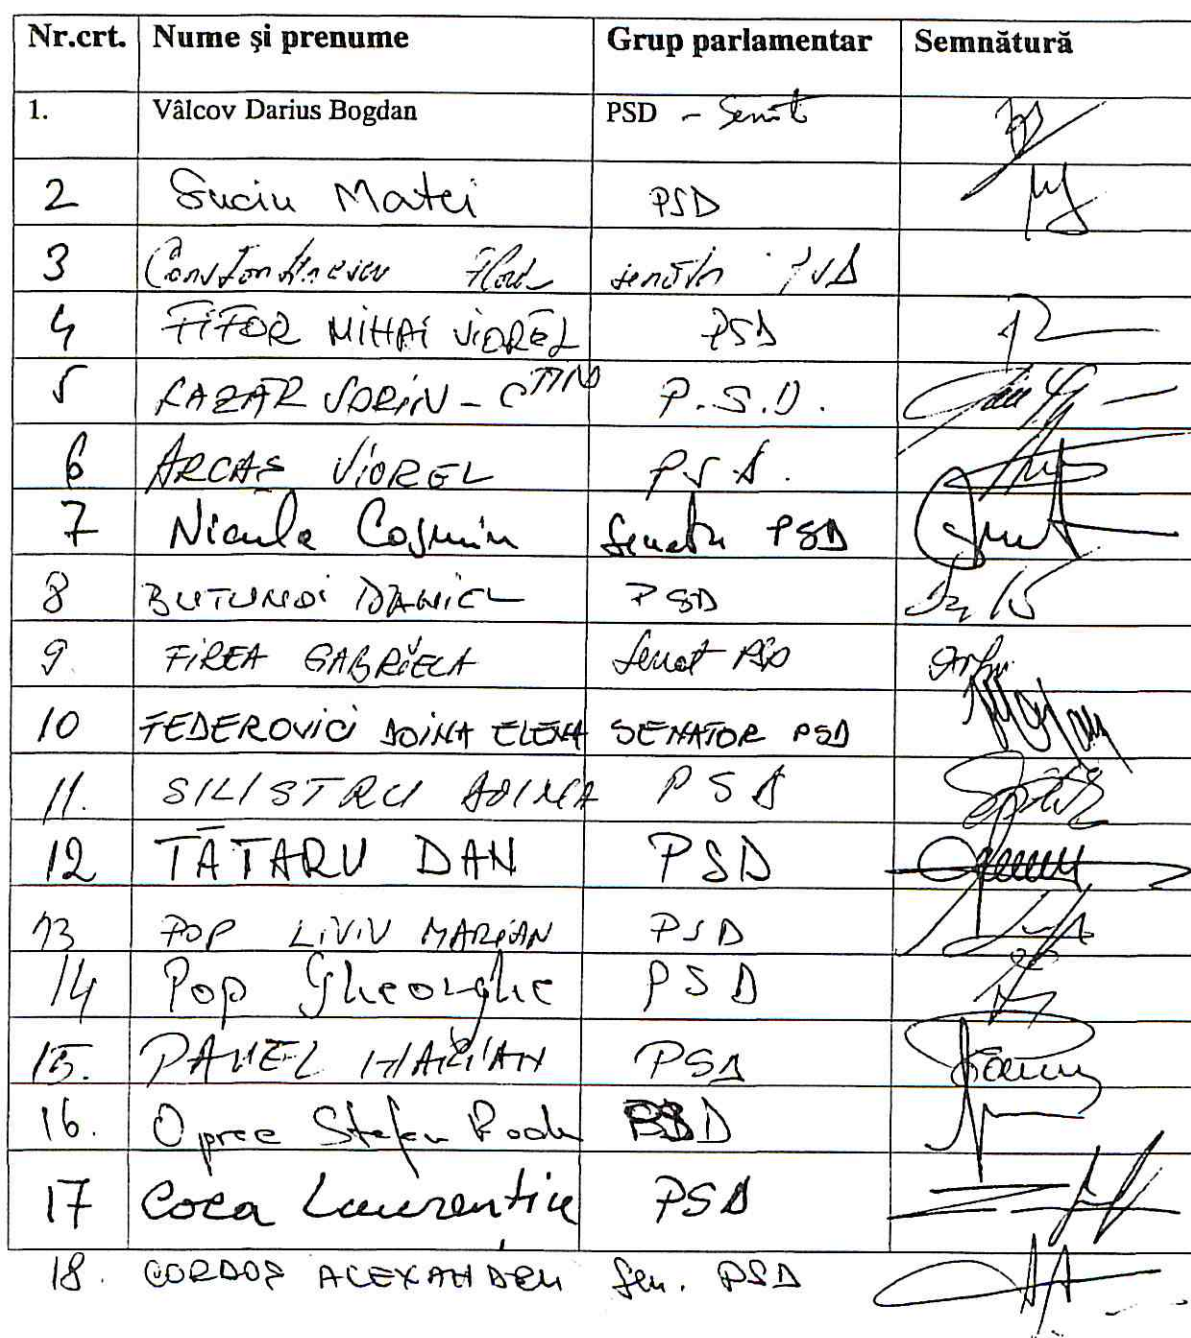 Nr.crt. Nume şi prenume Grup parlamentar Semnătură
1. Vâlcov Darius Bogdan PSD - Senat
2 Suciu Matei PSD
3 Constantinescu Florin senator PSD
4 FIFOR MIHAI VIOREL PSD
5 LAZAR SORIN - CTIN P.S.D.
6 ARCAS VIOREL PSD.
7 Nicula Cosmin Senator PSD
8 BUTUNOI DANIEL PSD
9. FIREA GABRIELA Senat PSD
10 FEDEROVICI DOINA ELENA SENATOR PSD
11. SILISTRU DOINA PSD
12 TĂTARU DAN PSD
13 POP LIVIU MARIAN PSD
14 Pop Gheorghe PSD
15. PAVEL MARIAN PSD
16. Oprea Stefan Radu PSD
17 Coca Laurentiu PSD
18. CORDOS ALEXANDRU Sen. PSD